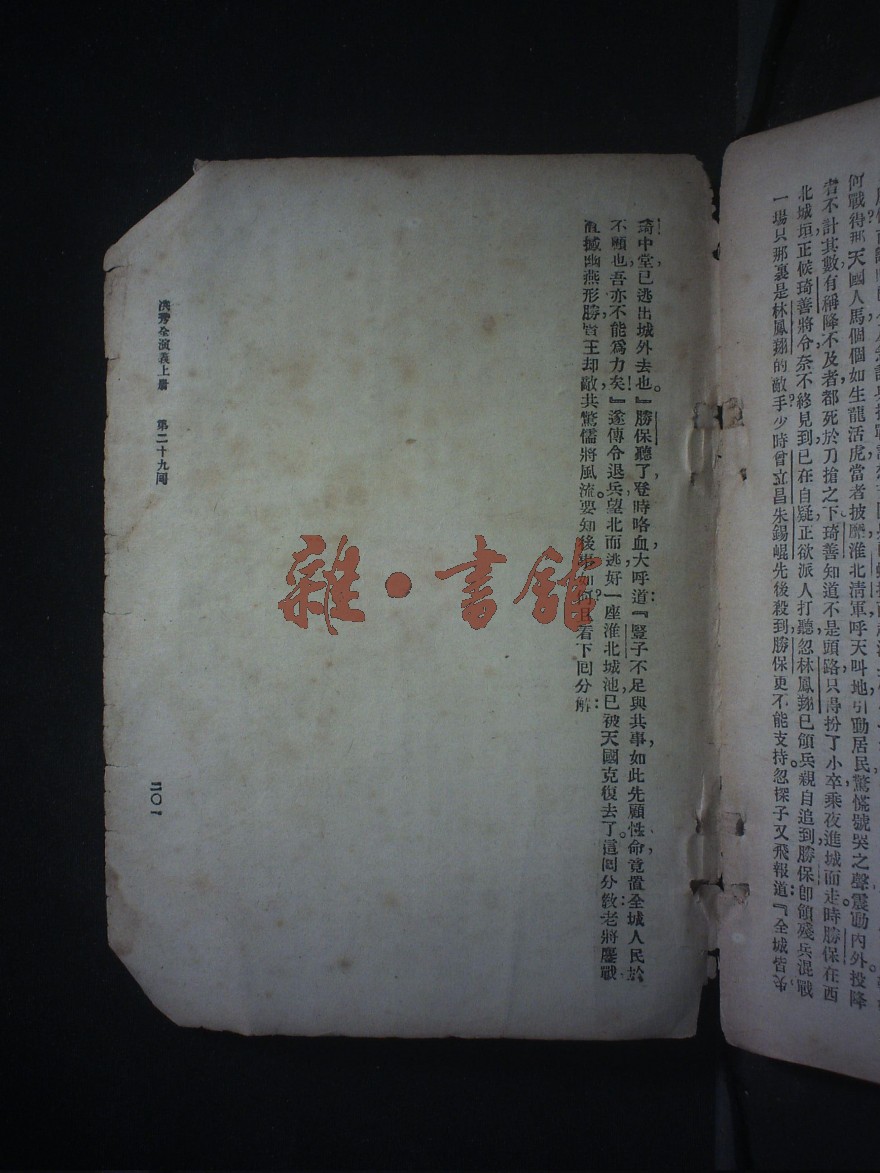 何戰得那天國人馬個個如生龍活虎當者披靡淮北清軍呼天叫地引動居民驚慌號哭之聲震動內外投降
者不計其數有稱降不及者都死於刀搶之下琦善知道不是頭路只得扮了小卒乘夜進城而走時勝保在西
北城垣正候琦善將令奈不終見到已在自疑正欲派人打聽忽林鳳翔已領兵親自追到勝保卽領殘兵混戰
一場只那裏是林鳳翔的敵手少時曾立昌朱錫崐先後殺到勝保更不能支持忽探子又飛報道『全城皆
琦中堂已逃出城外去也。』勝保聽了，登時咯血大呼道：『豎子不足與共事，如此先顧性命，竟置全城人民於
不顧也，吾亦不能爲力矣！』遂傳令退兵，望北而逃，好一座淮北城池，已被天國克復去了。這囘分敎：老將鏖戰，
直撼幽燕形勝；賢王却敵，共驚儒將風流。要知後事如何？且看下囘分解：
洪秀全演義上册　第二十九囘
二〇一
雜·書館